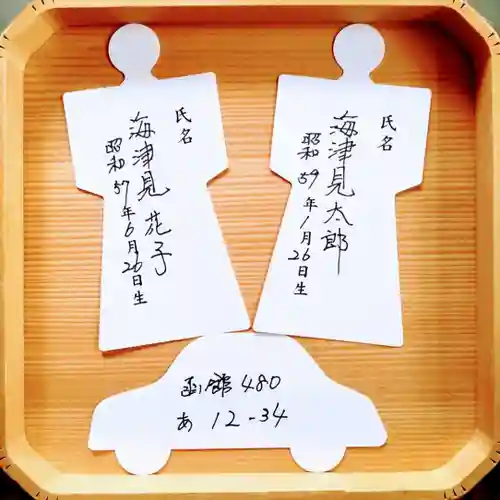 氏名
海津見太郎
昭和59年1月26日生
氏名
海津見 花子
昭和57年6月20日生
函館 480
あ 12-34